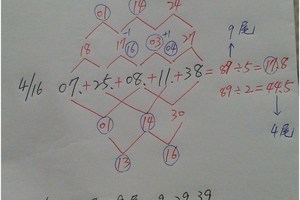 01 14 24
9尾
18 17 -1 16 03 +1 04 27
4/16 07.+25.+08.+11.+38 = 89÷5=17.8
89÷2=44.5
01 14 30
4尾
13 16